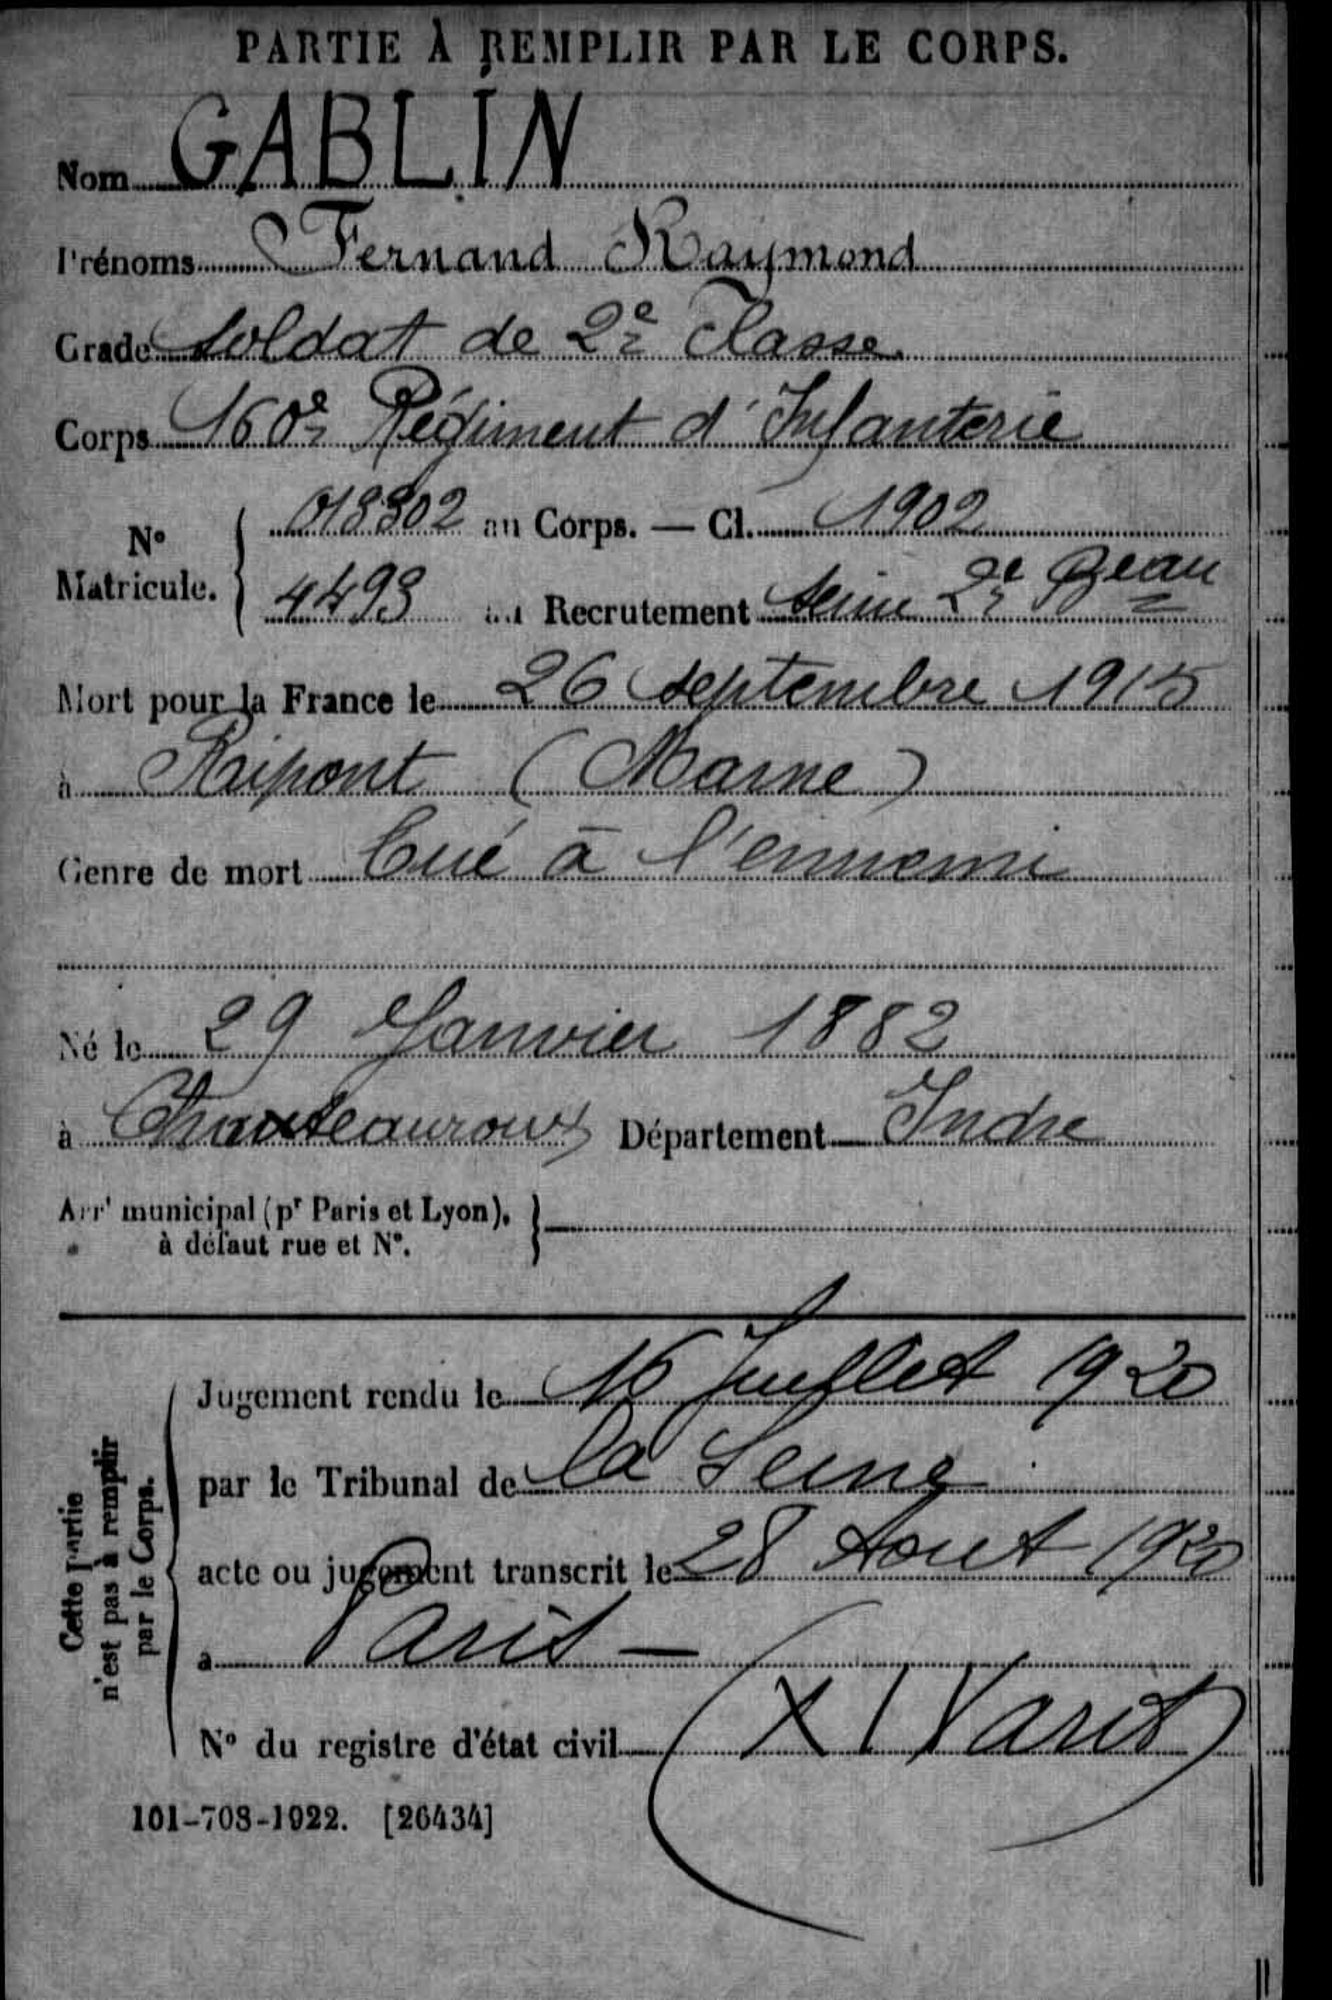 PARTIE À REMPLIR PAR LE CORPS.
Nom GABLIN
Prénoms Fernand Raymond
Grade Soldat de 2e Classe.
Corps 160e Régiment d'Infanterie
N° Matricule. 018802 au Corps. — Cl. 1902
4493 au Recrutement Seine 2e Beau
Mort pour la France le 26 septembre 1915
à Ripont (Marne)
Genre de mort Tué à l'ennemi
Né le 29 Janvier 1882
à Chateauroux Département Indre
Arrt municipal (pr Paris et Lyon),
à défaut rue et N°.
Cette partie
n'est pas à remplir
par le Corps.
Jugement rendu le 16 Juillet 1920
par le Tribunal de la Seine
acte ou jugement transcrit le 28 Aout 1920
à Paris —
N° du registre d'état civil (XI Paris)
101-708-1922. [26434]